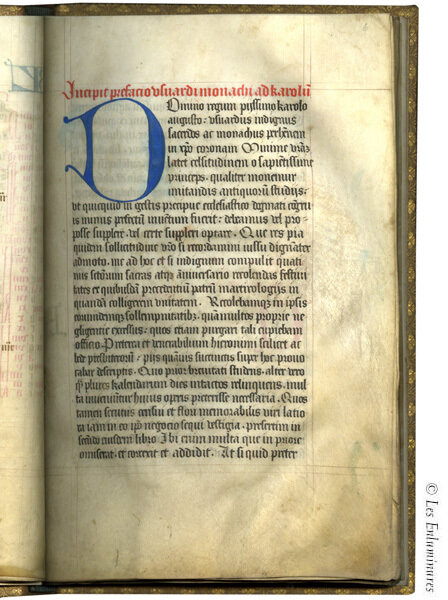 Incipit prefacio usuardi monachi ad karolū
Domino regum piissimo karolo
augusto: usuardus indignus
sacerdos ac monachus perhēnem
in xpō coronam Minime vrāʒ
latet celsitudinem o sapientissime
princeps. qualiter monemur
imitandis antiquorū studijs:
ut quicquid in gestis precipue ecclesiastico dogmati cōgru
is minus perfectū inuentum fuerit: debeamus vel pro
posse supplere. vel certe suppleri optare. Que res pia
quidem sollicitudine
admoto. me ad hoc et si indignum compulit quati
nus sctōrum sacras atqꝫ anniuersario recolendas festiui
tates ex quibusdā precedentiū patrū martirologijs in
quandā colligerem unitatem. Recolebamqꝫ in ipsis
eorumdemqꝫ sollempnitatibꝫ. quā multos proprie ne
gligentie excessus: quos etiam purgari tali cupiebam
officio. Preterea et venerabilium hieronimi scilicet ac
bede presbiterorū. pijs quāuis succincius super hoc prouo
cabar descriptis. Quorū prior breuitati studens. alter vero
qꝫ plures kalendarum dies intactos relinquens. mul
ta inueniuntur huius operis preterisse necessaria. Quos
tamen secutus censui et flori memorabilis viri latio
ra iam in eo ipō negocio sequi vestigia. presertim in
sedo eiusdem libro Ibi enim multa que in priore
omiserat. et correxit et addidit. At si quid preter
© Les Enluminures